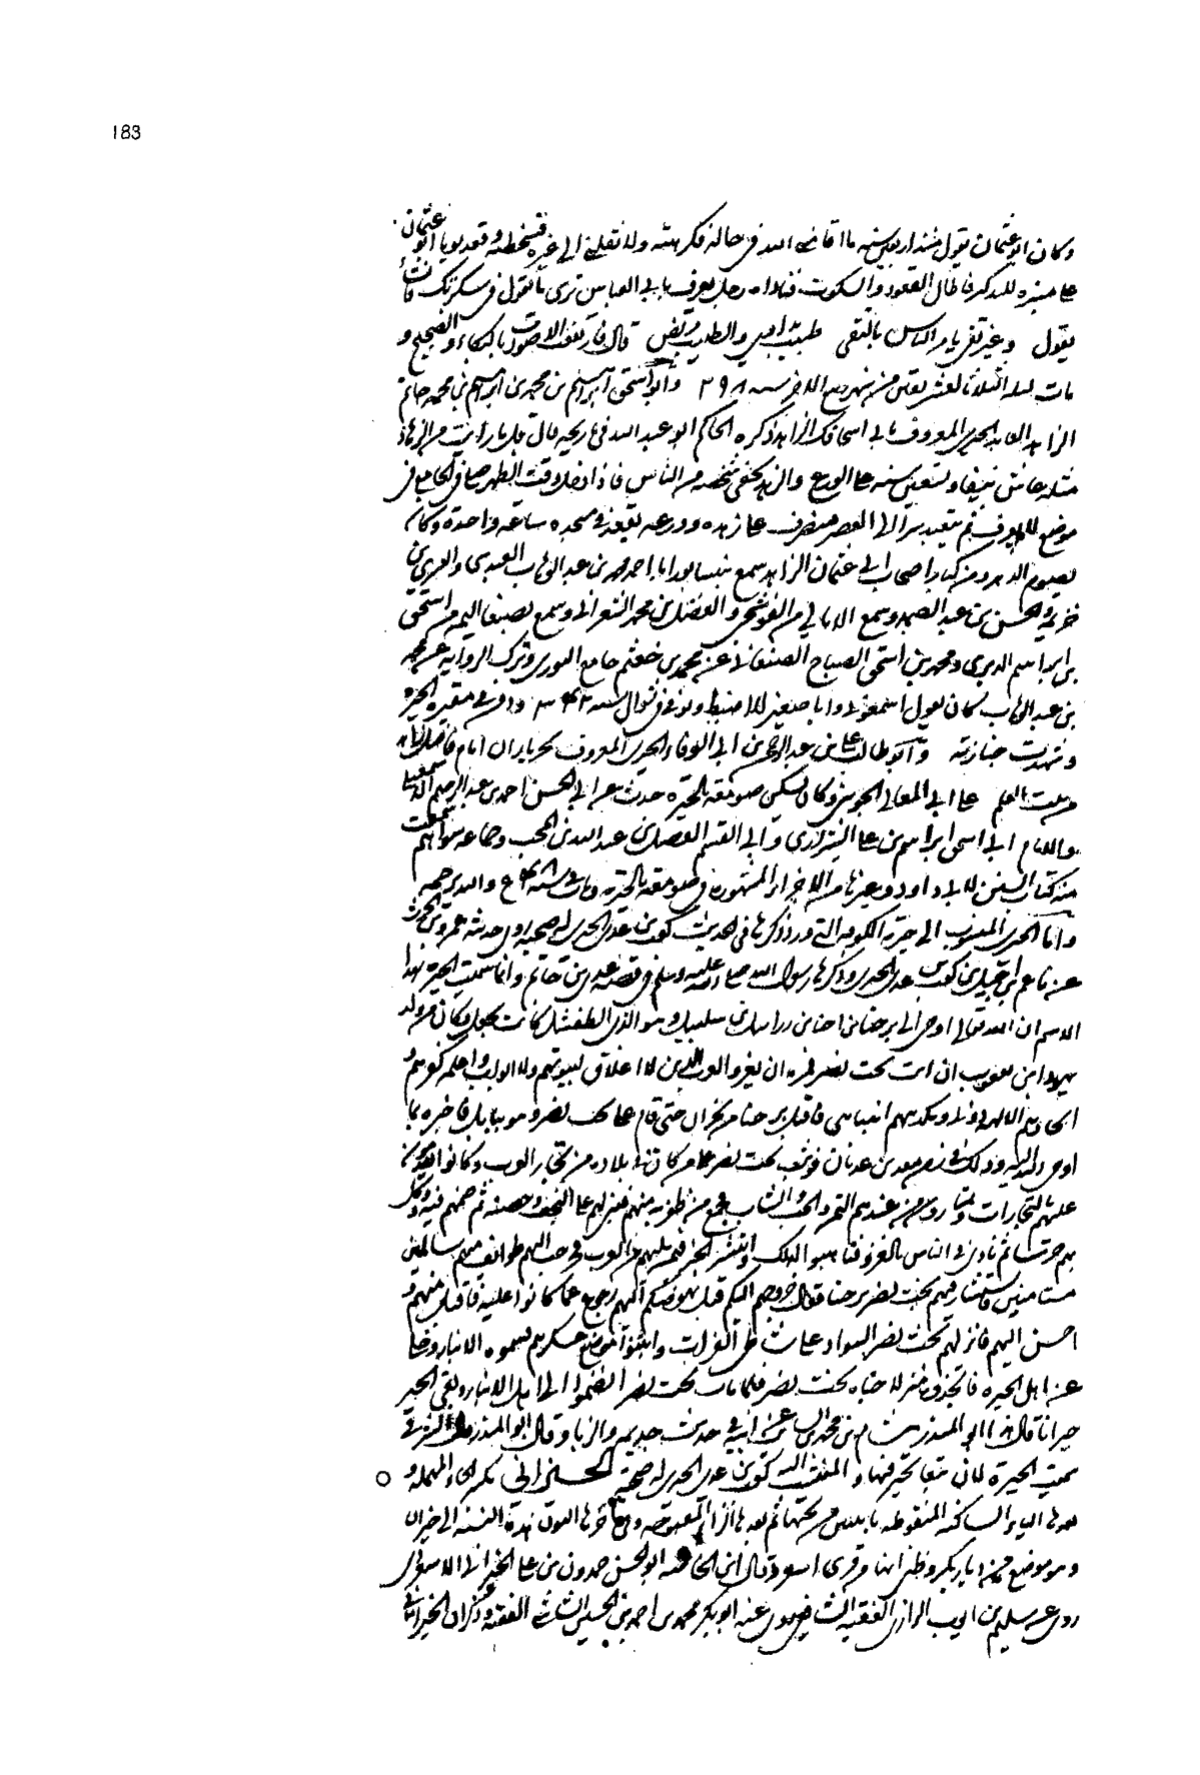 183
وكان ابو عثمان يقول منذ اربعين سنه ما اقامني الله في حالة فكرهته ولا نقلني الى غيره فسخطته وقعد يوما ابو عثمان
على منبره للتذكير فاطال القعود والسكوت فناداه رجل يعرف بابي العباس ترى ما تقول في سكوتك فانشأ
يقول وغير تقي يامر الناس بالتقى طبيب يداوي والطبيب مريض قال فارتفعت الاصوات بالبكاء والضجيج و
مات ليلة الثلثا لعشر بقين من شهر ربيع الاخر سنه ٢٩٨ وابو اسحق ابرهيم بن محمد بن ابرهيم بن محمد حاتم
الزاهد العابد الحيري المعروف بابي اسحاقك الزاهد ذكره الحاكم ابو عبد الله في تاريخه قال قل ما رايت من الزهاد
مثله عاش نيفا وتسعين سنه على الورع والزهد يخفي شخصه من الناس فاذا دخل وقت الظهر صلى في الجامع في
موضع لا يعرف ثم يتعبد سرا الى العصر منصرف على زهده وورعه يقعد في مسجده ساعة واحدة وكان
يصوم الدهر ومن كبار اصحاب ابي عثمان الزاهد سمع بنيسابور ابا احمد محمد بن عبد الوهاب العبدي والسري بن
خزيمة والحسن بن عبد الصمد وسمع الامالي من البوشنجي والفضل بن محمد الشعراني وسمع بصنعا اليمن من اسحق
بن ابراهيم الدبري ومحمد بن اسحق الصباح الصنعاني عن محمد بن جعثم جامع الثوري وترك الرواية عن محمد
بن عبد الوهاب كان يقول اسمعوني وانا صغير لا اضبط وتوفي في شوال سنه ودفن في مقبرة الحيرة
وشهدت جنازته وابو طالب على بن عبد الرحمن ابي الوفاء الحيري المعروف
على ابي المعالي الجويني وكان يسكن صومعة الحيرة حدث عن ابي الحسن احمد بن عبد الرحيم
والامام ابي اسحق ابراهيم بن على الشيرازي وابي القسم الفضل بن عبد الله بن المحب وجماعه سواهم سمعت
منه كتاب السنن لابي داود وغيرها من الاجزاء المنثورة في صومعته بالحيرة والله يرحمه
واما الحيري المنسوب الى حيرة الكوفه التي ورد ذكرها في الحديث كعب بن عدي الحيري له صحبه روى حديثه عمرو بن الحارث
عن ناعم بن اجيل بن كعب بن عدي الحيري وذكرها رسول الله صلى الله عليه وسلم في قصة عدي بن حاتم وانما سميت الحيرة بهذا
الاسم ان الله تعالى اوحى الى برخنا بن احنا بن
يهودا بن يعقوب ان ائت بخت نصر فمره ان يغزو العرب الذين لا اغلاق لبيوتهم ولا ابواب واعلمه كفرهم
اتخاذهم الالهة دوني وتكذيبهم انبيائي فاقبل برخنا من نجران حتى قدم على بخت نصر وهو ببابل فاخبره بما
اوحى الله اليه وذلك في زمن معد بن عدنان فوثب بخت نصر على من كان في بلاده من تجار العرب وكانوا يقدمون
عليهم بالتجارات ويمتارون من عندهم التمر والحب والثياب فجمع من ظفر به منهم فبنى لهم على النجف وحصنه ثم ضمهم فيه ووكل
بهم حرسا ثم نادى في الناس بالغزو فتاهبوا لذلك وانتشر الخبر فيمن يليهم من العرب فخرجت اليهم طوائف منهم سالمين
مستامنين فاستشار فيهم بخت نصر برخنا فقال خروجهم اليكم قبل نهوضكم اليهم رجوع عما كانوا عليه فاقبل منهم و
احسن اليهم فانزلهم بخت نصر السواد على شاطئ الفرات وابتنوا موضع عسكرهم فسموه الانبار وخلى
عن اهل الحيرة فاتخذوها منزلا حياة بخت نصر فلما مات بخت نصر انضموا الى اهل الانبار وبقي الحير
حيرانا قال هذا ابو المنذر هشام بن محمد بن السائب عن ابيه في حديث جذيمه والزبا وقال ابو المنذر
سميت الحيرة لان تبعا تحير فيها والمنتسب اليه كعب بن عدي الحيري له صحبة الحيزاني بكسر الحاء المهملة و
بعدها الياء الساكنه المنقوطه باثنتين من تحتها ثم بعدها الزاء المفتوحه وفي اخرها النون هذة النسبه الى حيزان
وهو موضع من ديار بكر وظني انها من قرى اسعرد قال ابن الحاضنه ابو الحسن حمدون بن على الحيزاني الاسعردي
روى عن سليم بن ايوب الرازي الفقيه الشافعي روى عنه ابو بكر محمد بن احمد بن الحسين الشاشي الفقيه وذكر ان الحيزاني